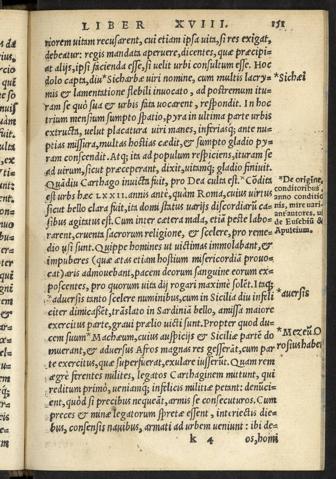 LIBER XVIII. 151
riorem uitam recusarent, cui etiam ipsa uita, si res exigat,
debeatur: regis mandata aperuere, dicentes, quæ præcipi-
at alijs, ipsi facienda esse, si uelit urbi consultum esse. Hoc
dolo capta, diu*Sicharbæ uiri nomine, cum multis lacry-
mis & lamentatione flebili inuocato, ad postremum itu-
ram se quò sua & urbis fata uocarent, respondit. In hoc
trium mensium sumpto spatio, pyra in ultima parte urbis
extructa, uelut placatura uiri manes, inferiasq; ante nu-
ptias missura, multas hostias cædit, & sumpto gladio py-
ram conscendit. Atq; ita ad populum respiciens, ituram se
ad uirum, sicut præceperant, dixit, uitamq; gladio finiuit.
Quādiu Carthago inuicta fuit, pro Dea culta est.*Cōdita
est urbs hæc LXXII. annis ante, quàm Roma, cuius uirtus
sicut bello clara fuit, ita domi status uarijs discordiarū ca-
sibus agitatus est. Cum inter cætera mala, etiā peste labo-
rarent, cruenta sacrorum religione, & scelere, pro reme-
dio usi sunt. Quippe homines ut uictimas immolabant, &
impuberes (quæ ætas etiam hostium misericordiā prouo-
cat) aris admouebant, pacem deorum sanguine eorum ex-
poscentes, pro quorum uita dij rogari maximè solēt. Itaq;
*aduersis tanto scelere numinibus, cum in Sicilia diu infeli
citer dimicasset, trāslato in Sardiniā bello, amissa maiore
exercitus parte, graui prælio uicti sunt. Propter quod du-
cem suum*Machæum, cuius auspicijs & Siciliæ partē do
muerant, & aduersus Afros magnas res gesserāt, cum par
te exercitus, quæ superfuerat, exulare iusserūt. Quam rem
ægrè ferentes milites, legatos Carthaginem mittunt, qui
reditum primò, ueniamq; infelicis militiæ petant: denuci-
ent, quòd si precibus nequeāt, armis se consecuturos. Cum
preces & minæ legatorum spretæ essent, interiectis die-
bus, consensis nauibus, armati ad urbem ueniunt: ibi de-
k 4 os, homi
*Sichæi
*De origine,
conditoribus,
anno conditio
nis, mire uari-
ant autores, ut
de Eusebiū &
*auersis
*Mezeū. O
rosius habet